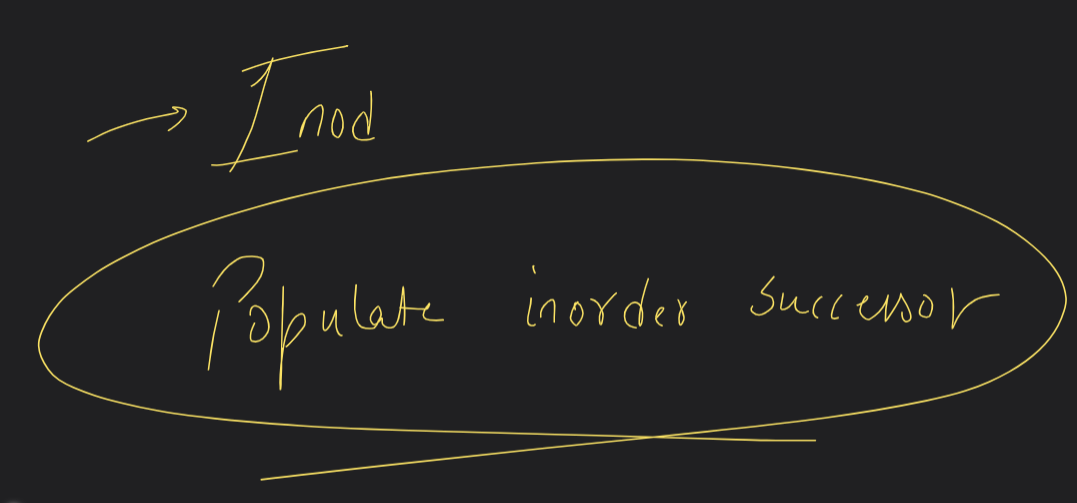 Inod
Populate inorder successor